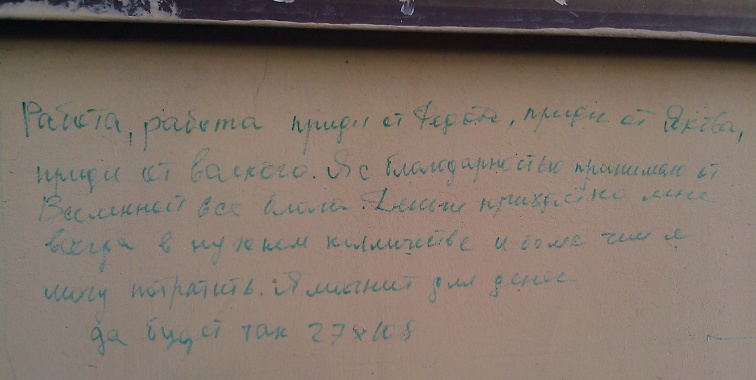 Работа, работа приди от Федота, приди от Якова,
приди от всякого. Я с благодарностью принимаю от
Вселенной все блага. Деньги приходят ко мне
всегда в нужном колличестве и более чем я
могу потратить. Я магнит для денег
да будет так 27х108